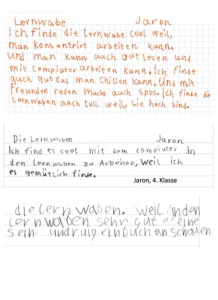 Lernwabe Jaron
Ich finde die Lernwabe cool weil,
man konsntrirt arbeiten kann.
Und man kann auch gut lesen und
mit computer arbeiten kann. Ich finde
auch gut das man chillen kann. Und mit
Freunden reden macht auch spss. Ich finde die
Lernwaben auch toll weil, sie hoch sind.
Die Lernwaben Jaron
Ich find es cool mit dem computer in
den lernwaben zu Arbeiten, weil ich
es gemütlich finde.
Jaron, 4. Klasse
die lern waben. Weil in den
Lern waben sehr gut aleine
sein und ruig ein buch an schauen